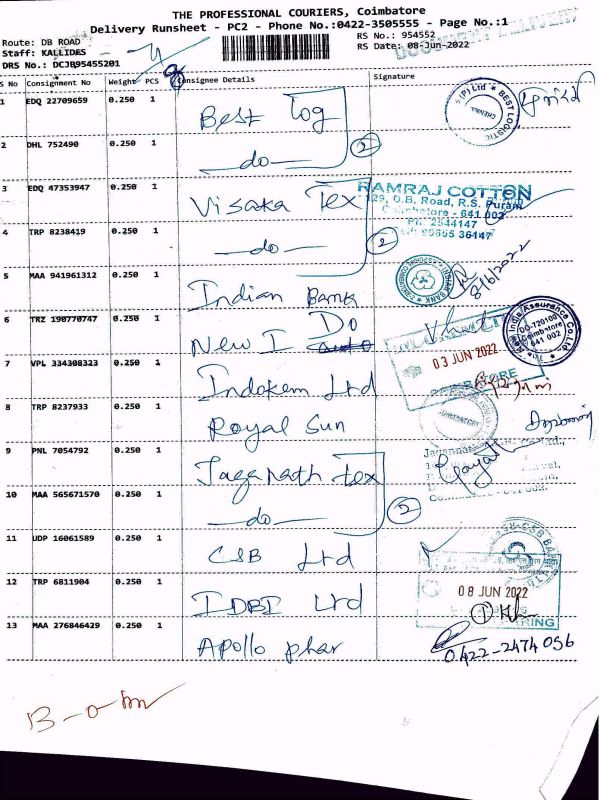 THE PROFESSIONAL COURIERS, Coimbatore
Delivery Runsheet - PC2 - Phone No.:0422-3505555 - Page No.:1
Route: DB ROAD
RS No.: 954552
Staff: KALLIDES
RS Date: 08-Jun-2022
S No Consignment No Weight PCS Consignee Details Signature
1 EDQ 22709659 0.250 1 Best Log
2 DHL 752490 0.250 1 do
2
3 EDQ 47353947 0.250 1 Visaka Tex
RAMRAJ COTTON
129, D.B. Road, R.S. Puram
Coimbatore - 641 002
4 TRP 8238419 0.250 1 do
2
5 MAA 941961312 0.250 1 Indian Bank
8/6/2022
6 TRZ 190770747 0.250 1 New I Do
7 VPL 334308323 0.250 1 Indokem Ltd
03 JUN 2022
8 TRP 8237933 0.250 1 Royal Sun
9 PNL 7054792 0.250 1 Jaganath tex
10 MAA 565671570 0.250 1 do
2
11 UDP 16061589 0.250 1 CSB Ltd
12 TRP 6811904 0.250 1 IDBI Ltd
08 JUN 2022
13 MAA 276846429 0.250 1 Apollo phar
0422-2474056
B-om